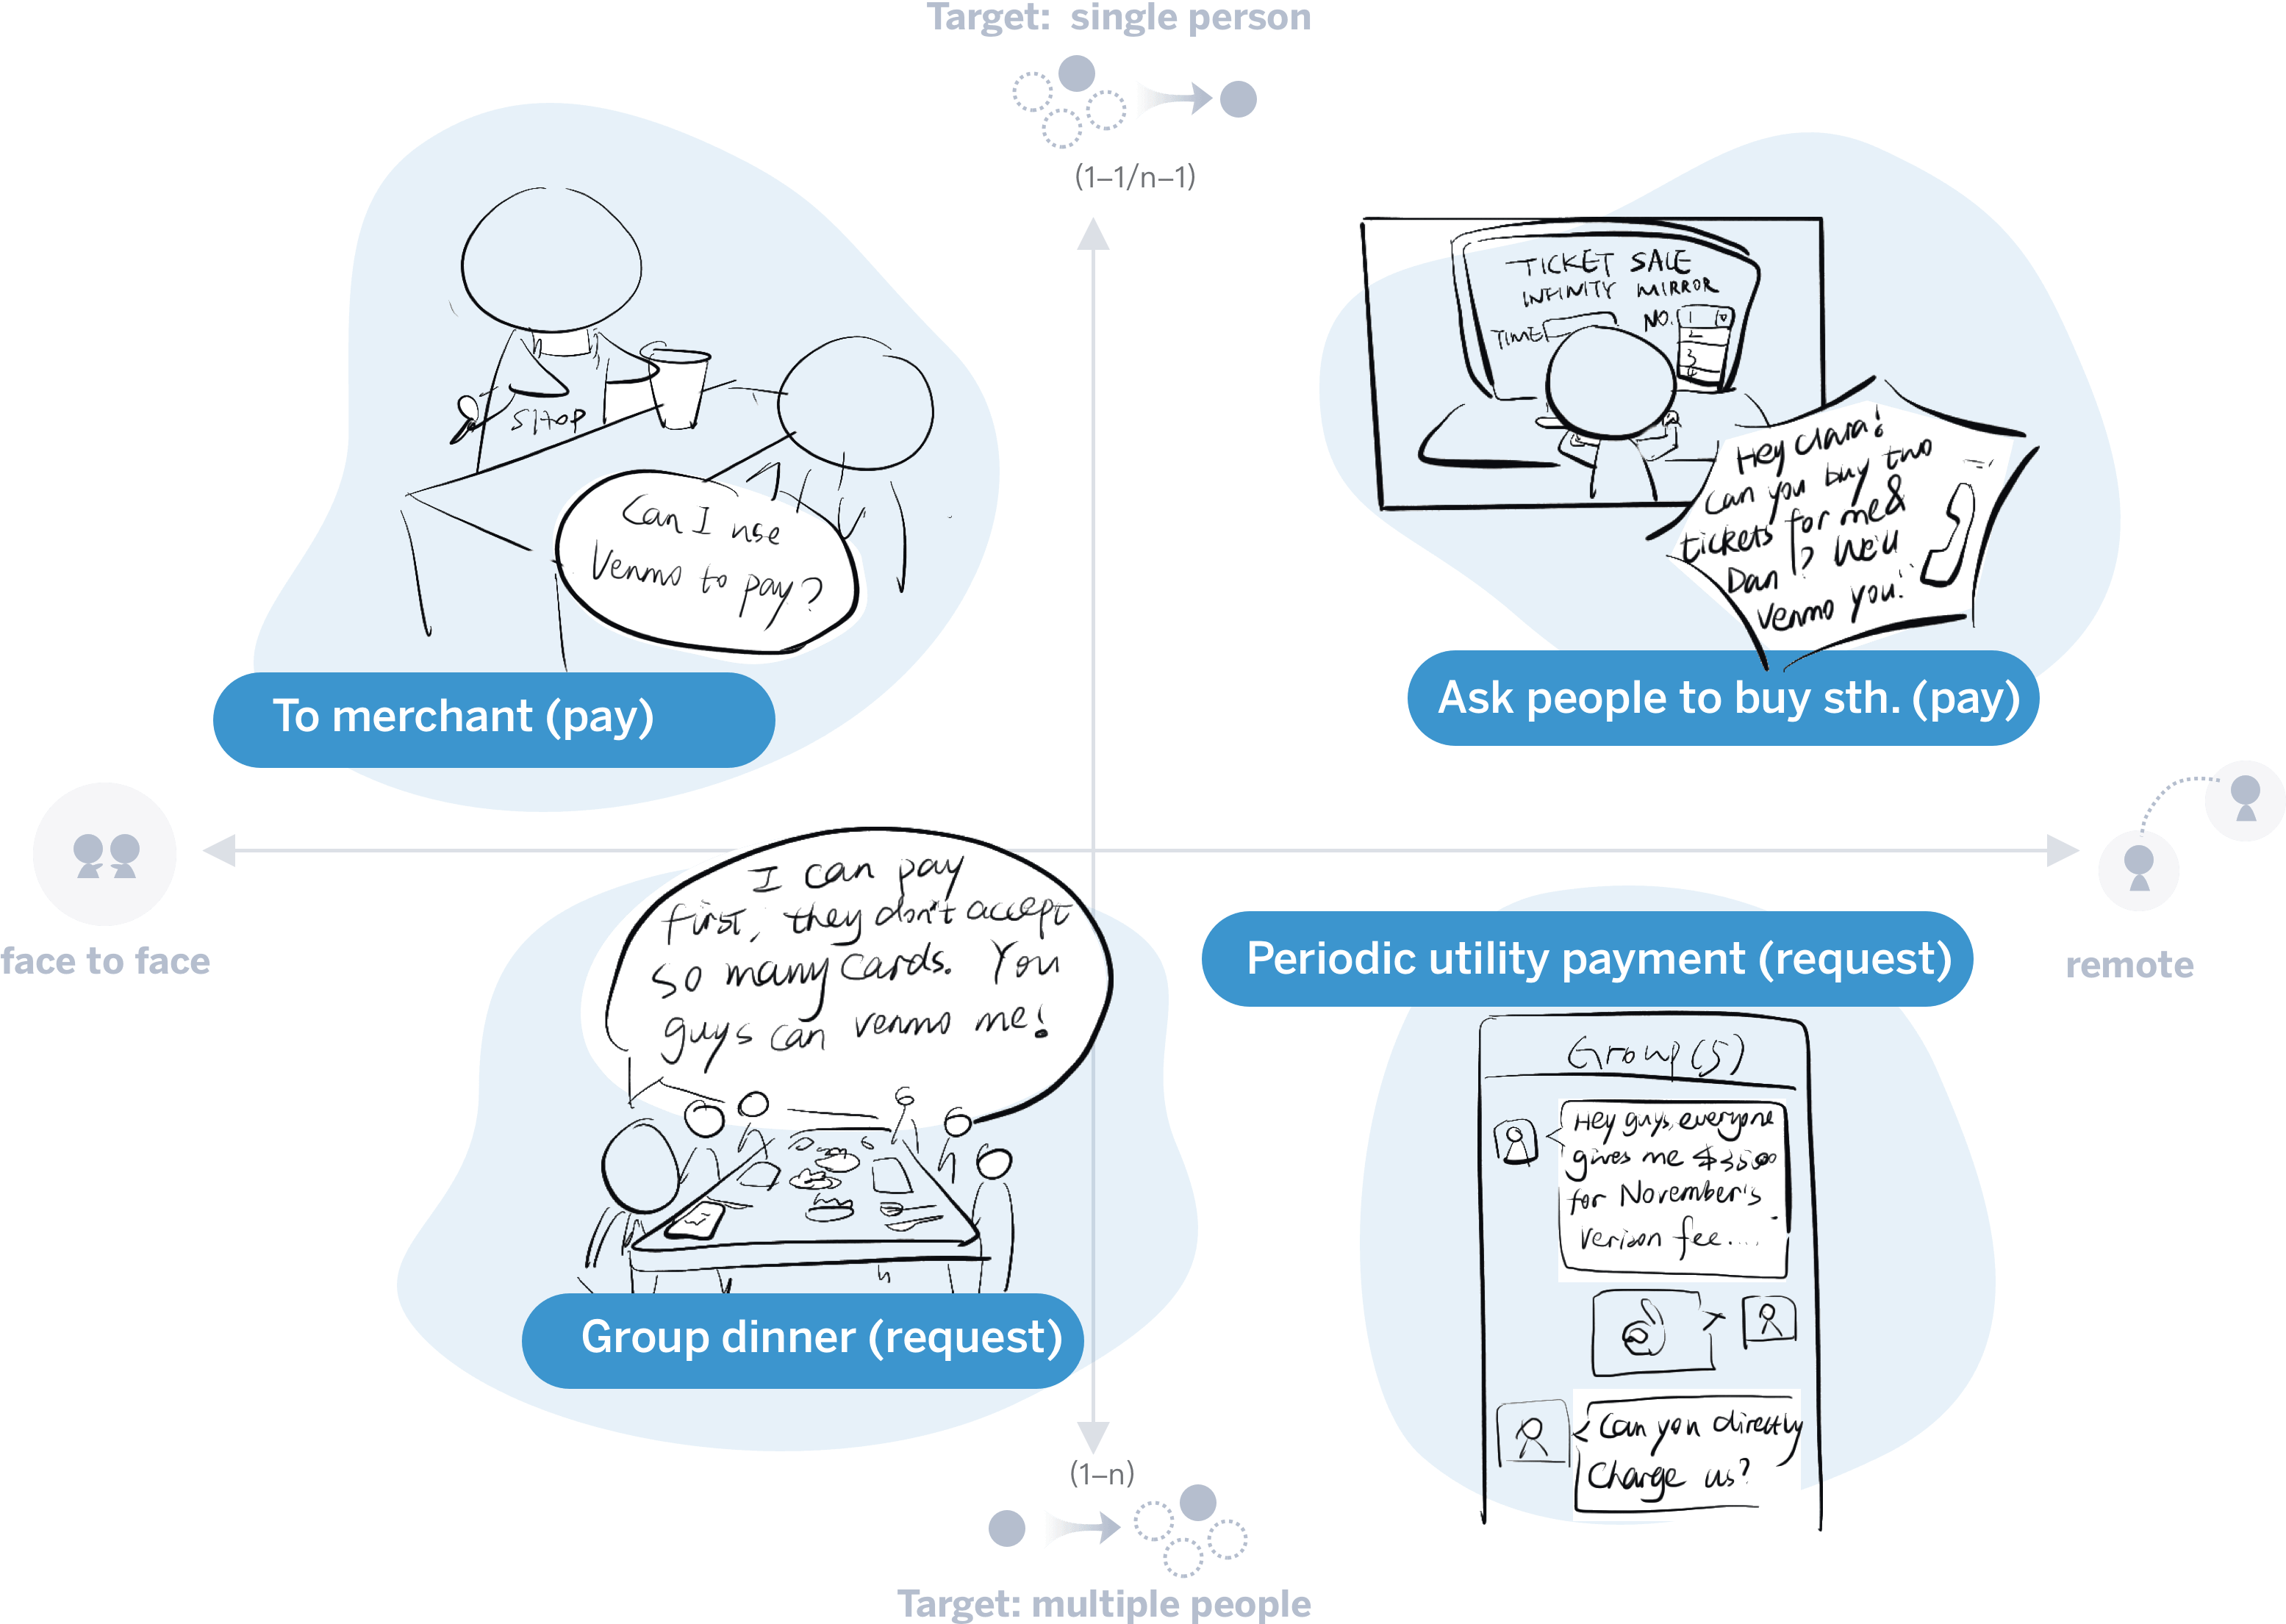 Target:  single person
(1–1/n–1)
SHOP
Can I use
Venmo to pay?
To merchant (pay)
TICKET SALE
INFINITY MIRROR
TIME
NO. 1
2
3
4
Hey Clara!
Can you buy two
tickets for me&
Dan? We'll
venmo you!
Ask people to buy sth. (pay)
face to face
remote
I can pay
first, they don't accept
so many cards. You
guys can venmo me!
Group dinner (request)
Periodic utility payment (request)
Group (5)
Hey guys, everyone
gives me
for November's
Verison fee....
Can you directly
Charge us?
(1–n)
Target: multiple people